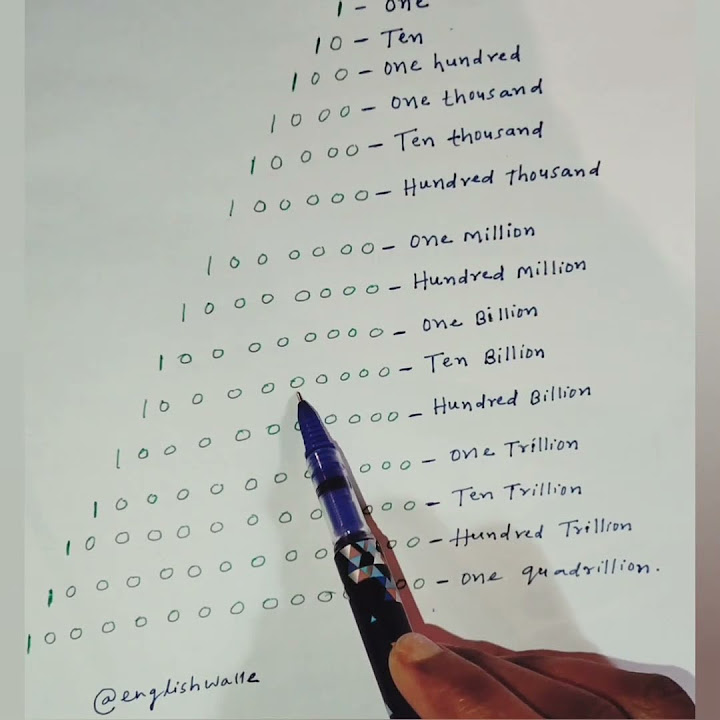 1 - one
10 - Ten
100 - one hundred
1000 - one thousand
10000 - Ten thousand
100000 - Hundred thousand
1000000 - one Million
10000000 - Hundred Million
100000000 - one Billion
1000000000 - Ten Billion
10000000000 - Hundred Billion
- one Trillion
- Ten Trillion
- Hundred Trillion
- one quadrillion.
@englishwalle